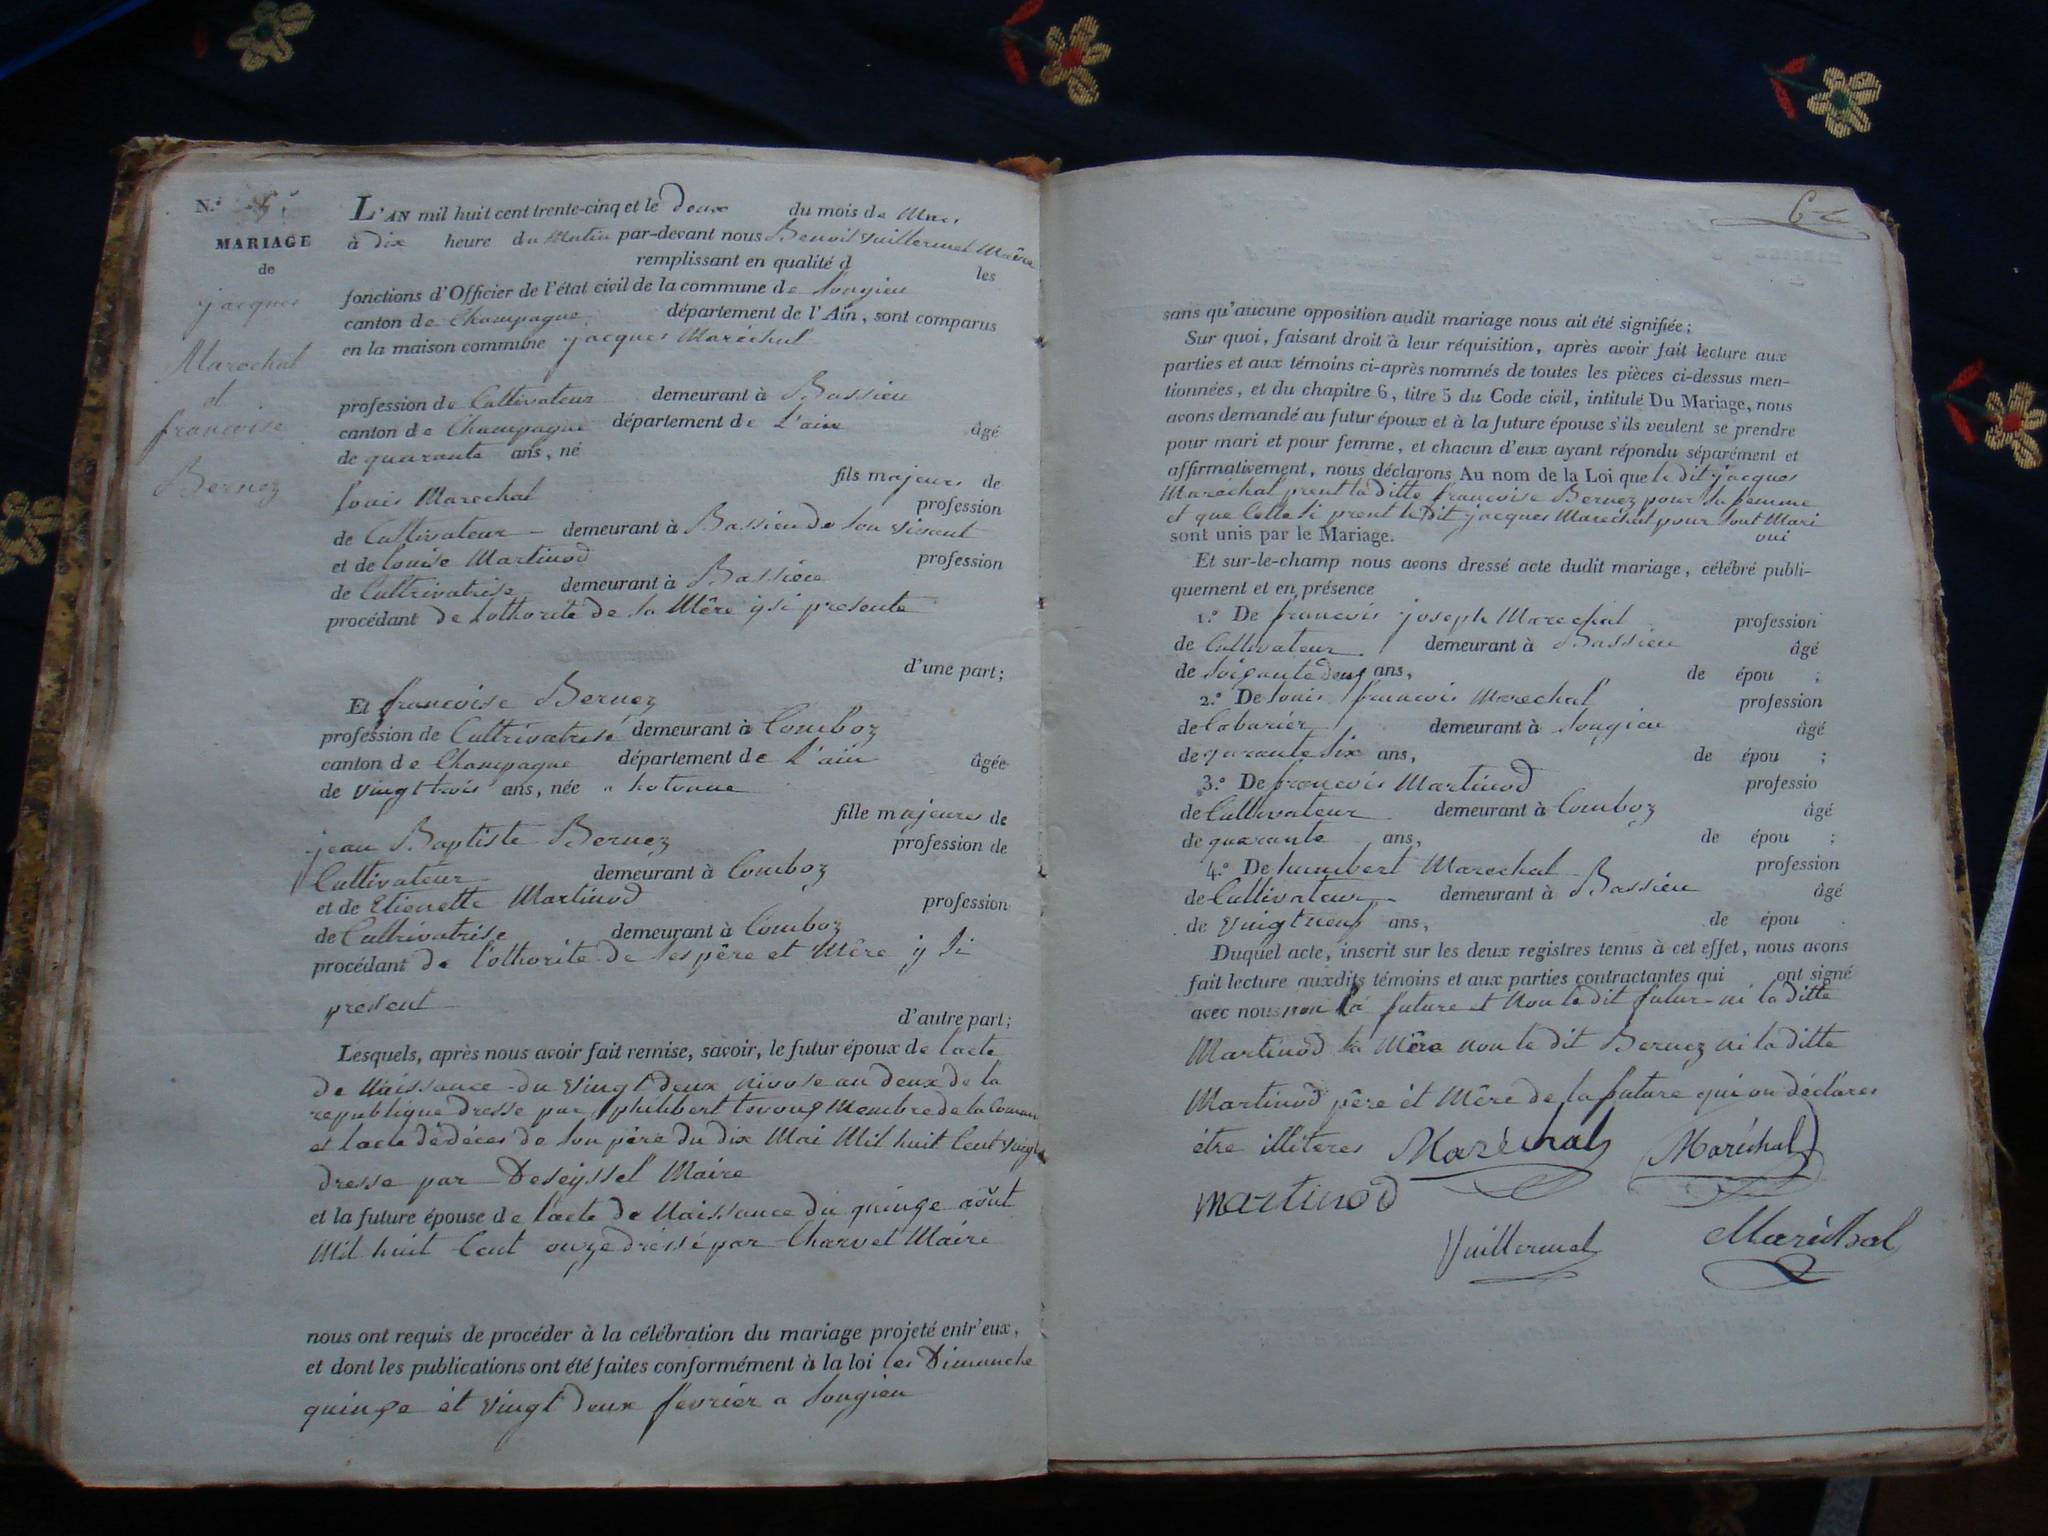 N.º 5.
MARIAGE
de
jacques
Marechal
et
francoise
Bernez
L'AN mil huit cent trente-cinq et le deux du mois de Mars
à dix heure du Matin par-devant nous Benoit Vuillermet Maire
remplissant en qualité d les
fonctions d'Officier de l'état civil de la commune de Songieu
canton de Champagne département de l'Ain, sont comparus
en la maison commune jacques Maréchal
profession de Cultivateur demeurant à Bassieu
canton de Champagne département de L'ain âgé
de quarante ans, né
fils majeurs de
Louis Marechal profession
de Cultivateur demeurant à Bassieu de son vivant
et de Louise Martinod profession
de Cultrivatrise demeurant à Bassieu
procédant de l'othorité de sa Mère ysi presente
d'une part;
Et francoise Bernez
profession de Cultrivatrise demeurant à Comboz
canton de Champagne département de L'ain âgée
de vingt trois ans, née a hotonne
fille majeures de
jean Baptiste Bernez profession de
Cultivateur demeurant à Comboz
et de Etienette Martinod profession
de Cultrivatrise demeurant à Comboz
procédant de l'othorité de ses père et Mère y si
present
d'autre part;
Lesquels, après nous avoir fait remise, savoir, le futur époux de lacte
de Naissance du vingt deux nivose an deux de la
republique dresse par philibert Membre de la Commun
et lacte dédéces de son père du dix Mai Mil huit Cent vingt
dresse par Deseyssel Maire
et la future épouse de l'acte de Naissance du quinze août
Mil huit Cent onze dressé par Charvet Maire
nous ont requis de procéder à la célébration du mariage projeté entr'eux,
et dont les publications ont été faites conformément à la loi les Dimanche
quinze et vingt deux fevriér a Songieu
sans qu'aucune opposition audit mariage nous ait été signifiée;
Sur quoi, faisant droit à leur réquisition, après avoir fait lecture aux
parties et aux témoins ci-après nommés de toutes les pièces ci-dessus men-
tionnées, et du chapitre 6, titre 5 du Code civil, intitulé Du Mariage, nous
avons demandé au futur époux et à la future épouse s'ils veulent se prendre
pour mari et pour femme, et chacun d'eux ayant répondu séparément et
affirmativement, nous déclarons Au nom de la Loi que le dit jacques
Maréchal prent la ditte francoise Bernez pour sa femme
et que Cette si prent le dit jacques Maréchal pour Sont Mari
sont unis par le Mariage. oui
Et sur-le-champ nous avons dressé acte dudit mariage, célébré publi-
quement et en présence
1.º De francois joseph Marechal profession
de Cultivateur demeurant à Bassieu âgé
de soixante deux ans, de épou ;
2.º De Louis francois Marechal profession
de Cabariér demeurant à Songieu âgé
de quarante six ans, de épou ;
3.º De francois Martinod professio
de Cultivateur demeurant à Comboz âgé
de quarante ans, de épou ;
4.º De humbert Marechal profession
de Cultivateur demeurant à Bassieu âgé
de vingt neuf ans, de épou .
Duquel acte, inscrit sur les deux registres tenus à cet effet, nous avons
fait lecture auxdits témoins et aux parties contractantes qui ont signé
avec nous non la future et Non le dit futur ni la ditte
Martinod la Mère non le dit Bernez ni la ditte
Martinod père et Mère de la future qui on déclares
étre illiteres Maréchal Maréchal
martinod
Vuillermet Maréchal